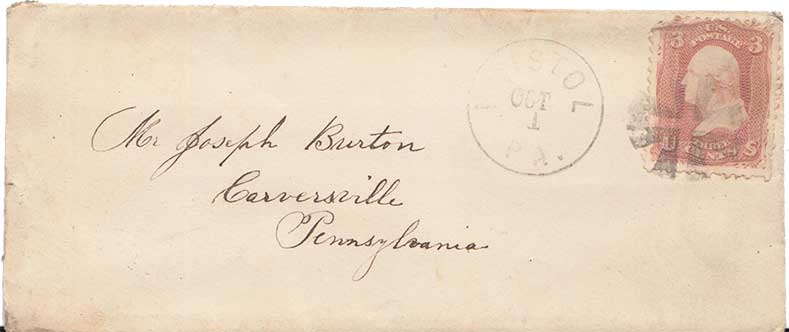 Mr Joseph Burton
Carversville
Pennsylvania
BRISTOL
OCT
1
PA.
3 U.S. 3
POSTAGE
U THREE S
CENTS